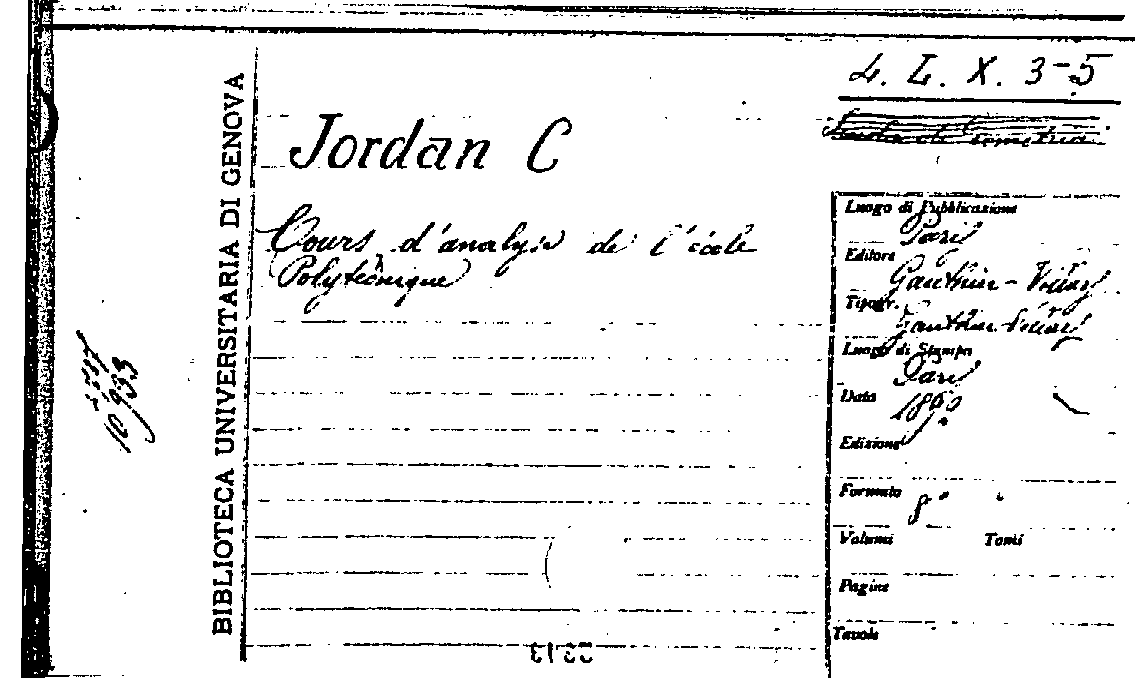 4. L. X. 3-5
BIBLIOTECA UNIVERSITARIA DI GENOVA
Jordan C
Cours d'analyse de l'école
Polytecnique
Luogo di Pubblicazione
Paris
Editore
Gauthier-Villars
Tipogr.
Gauthier-Villars
Luogo di Stampa
Paris
Data
Edizione
Formato
8°
Volumi Tomi
Pagine
Tavole